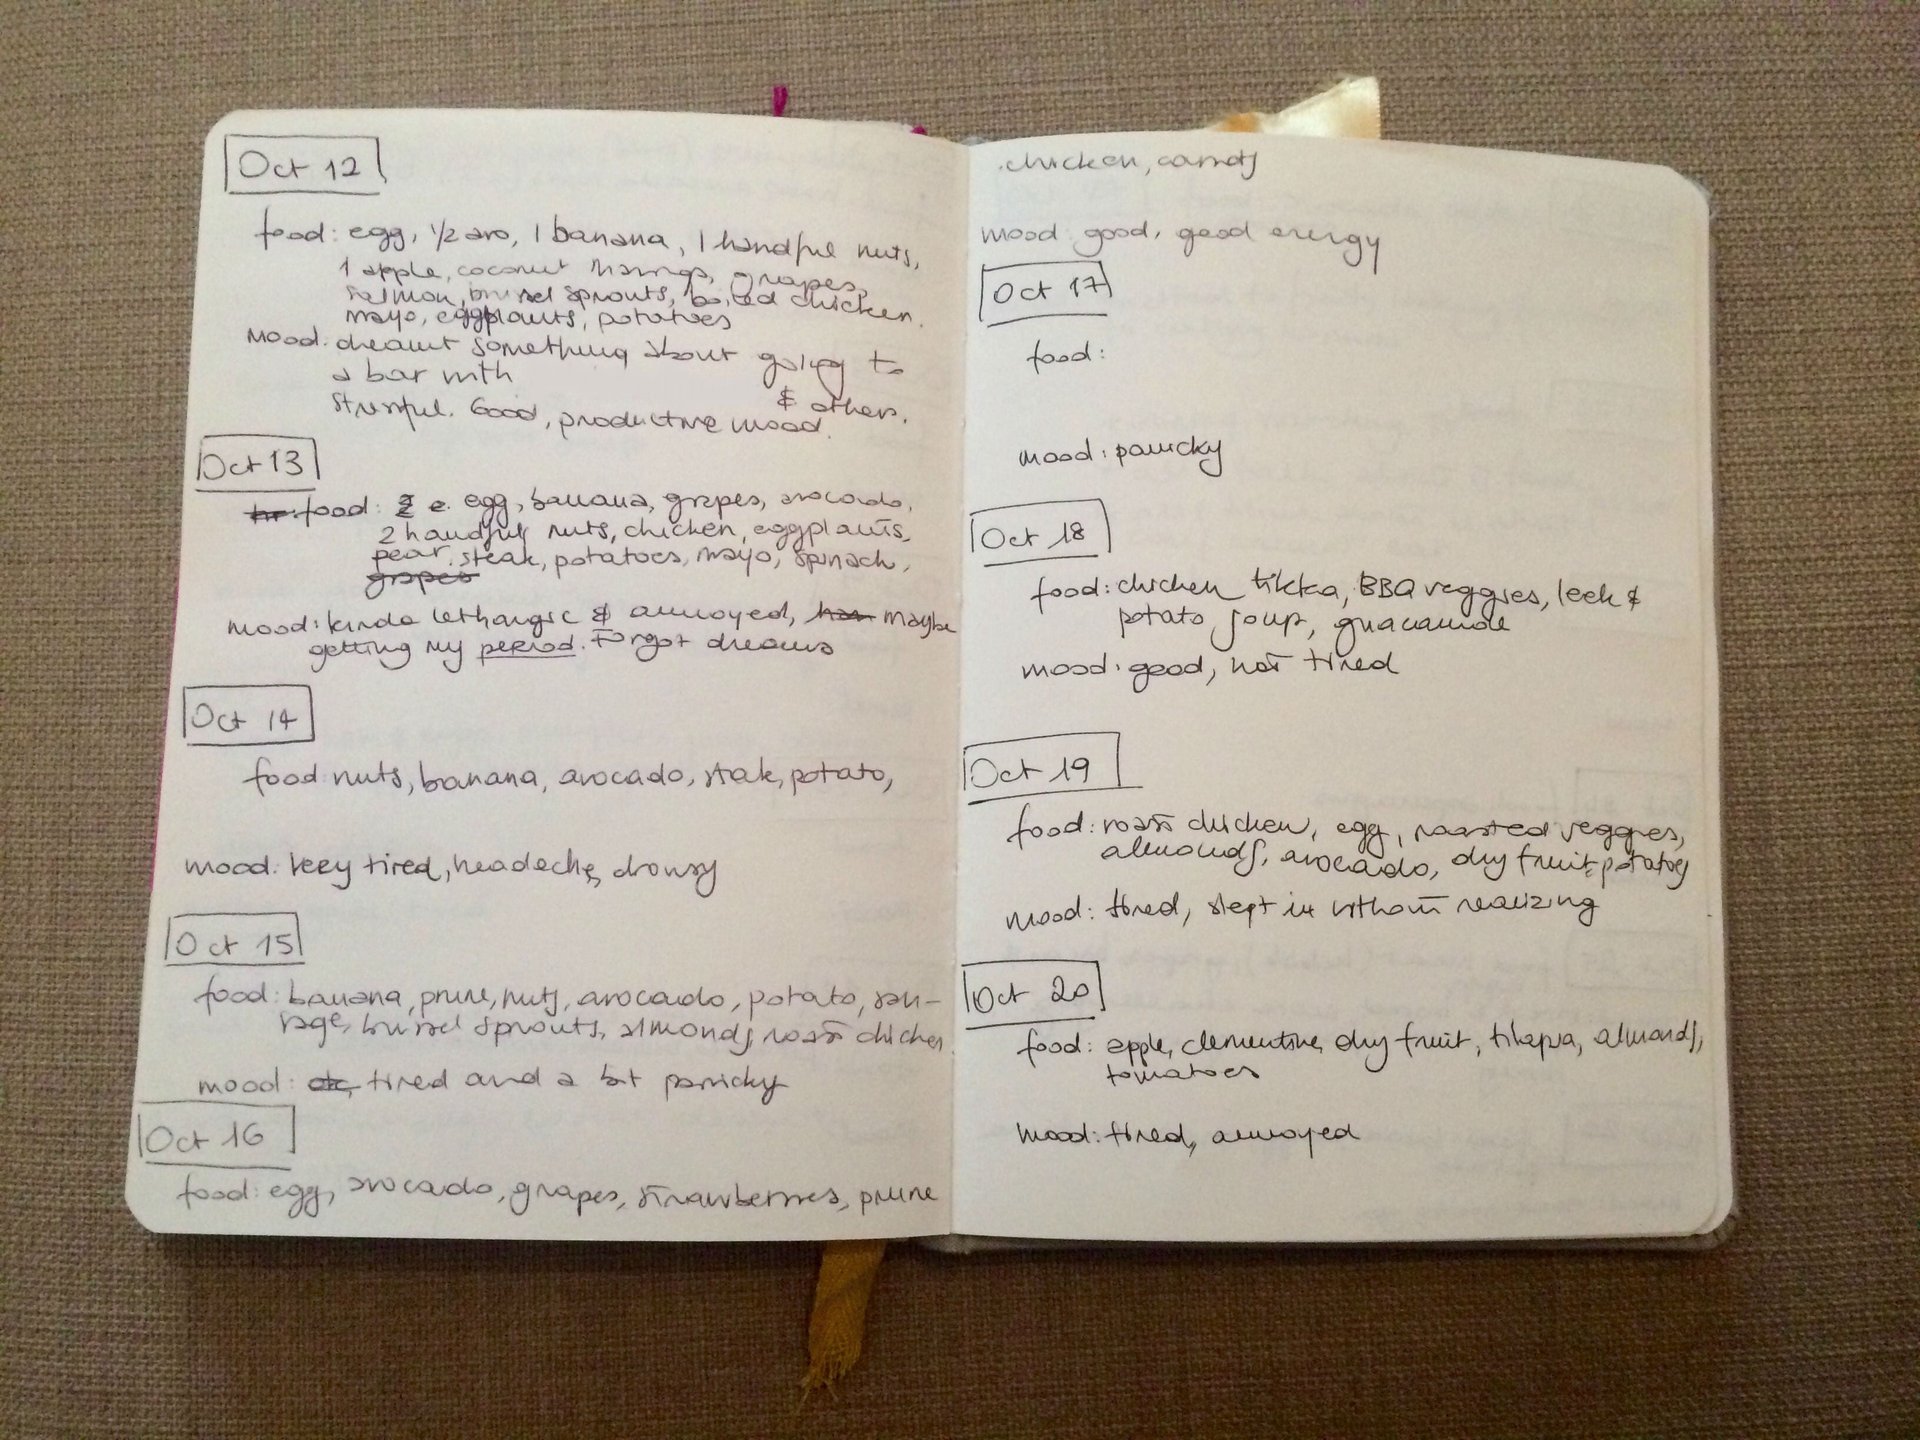 Oct 12
food: egg, 1/2 avo, 1 banana, 1 handful nuts,
1 apple, coconut shavings, grapes,
salmon, brussel sprouts, boiled chicken.
mayo, eggplants, potatoes
mood: dreamt something about going to
a bar with
& others.
stressful. Good, productive mood.
Oct 13
food: 2 e. egg, banana, grapes, avocado,
2 handfuls nuts, chicken, eggplants,
pear, steak, potatoes, mayo, spinach,
grapes
mood: kinda lethargic & annoyed, maybe
getting my period. Forgot dreams
Oct 14
food: nuts, banana, avocado, steak, potato,
mood: very tired, headache, drowsy
Oct 15
food: banana, prune, nuts, avocado, potato, sau-
sage, brussel sprouts, almonds, roast chicken
mood: ok, tired and a bit panicky
Oct 16
food: egg, avocado, grapes, strawberries, prune
chicken, carrots
mood: good, good energy
Oct 17
food:
mood: panicky
Oct 18
food: chicken tikka, BBQ veggies, leek &
potato soup, guacamole
mood: good, not tired
Oct 19
food: roast chicken, egg, roasted veggies,
almonds, avocado, dry fruit, potatoes
mood: tired, slept in without realizing
Oct 20
food: apple, clementine, dry fruit, tilapia, almonds,
tomatoes
mood: tired, annoyed